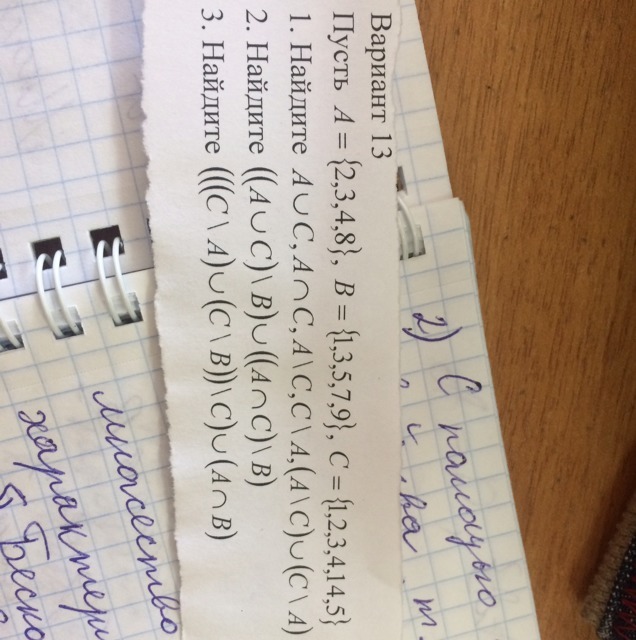 Вариант 13
Пусть A = {2,3,4,8}, B = {1,3,5,7,9}, C = {1,2,3,4,14,5}
1. Найдите A∪C, A∩C, A\C, C\A, (A\C)∪(C\A)
2. Найдите ((A∪C)\B)∪((A∩C)\B)
3. Найдите (((C\A)∪(C\B))\C)∪(A∩B)
2) С помощью
множество
характери